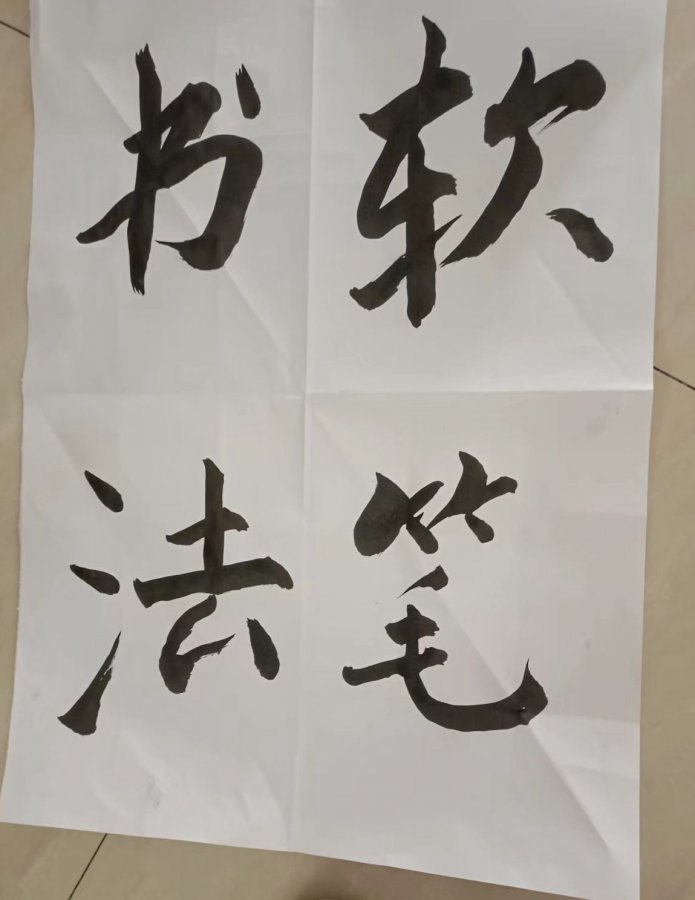 软笔
书法